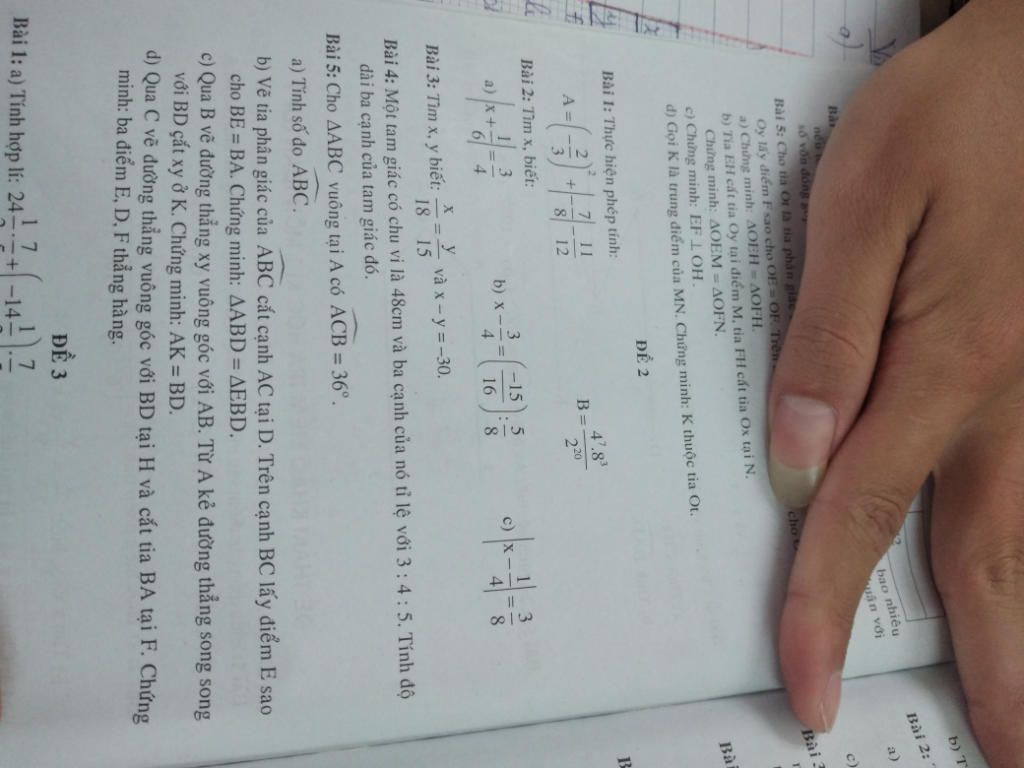 Bài 5: Cho tia Ot là tia phân giác
Oy lấy điểm F sao cho OE = OF. Trên
a) Chứng minh: ΔOEH = ΔOFH.
b) Tia EH cắt tia Oy tại điểm M, tia FH cắt tia Ox tại N.
Chứng minh: ΔOEM = ΔOFN.
c) Chứng minh: EF ⊥ OH.
d) Gọi K là trung điểm của MN. Chứng minh: K thuộc tia Ot.
ĐỀ 2
Bài 1: Thực hiện phép tính:
A = (-2/3)² + |-7/8| - 11/12 B = 4⁷.8³/2²⁰
Bài 2: Tìm x, biết:
a) |x + 1/6| = 3/4 b) x - 3/4 = (-15/16) : 5/8 c) |x - 1/4| = 3/8
Bài 3: Tìm x, y biết: x/18 = y/15 và x – y = –30.
Bài 4: Một tam giác có chu vi là 48cm và ba cạnh của nó tỉ lệ với 3 : 4 : 5. Tính độ
dài ba cạnh của tam giác đó.
Bài 5: Cho ΔABC vuông tại A có ACB = 36°.
a) Tính số đo ABC.
b) Vẽ tia phân giác của ABC cắt cạnh AC tại D. Trên cạnh BC lấy điểm E sao
cho BE = BA. Chứng minh: ΔABD = ΔEBD.
c) Qua B vẽ đường thẳng xy vuông góc với AB. Từ A kẻ đường thẳng song song
với BD cắt xy ở K. Chứng minh: AK = BD.
d) Qua C vẽ đường thẳng vuông góc với BD tại H và cắt tia BA tại F. Chứng
minh: ba điểm E, D, F thẳng hàng.
ĐỀ 3
Bài 1: a) Tính hợp lí: 24
bao nhiêu
b) T
Bài 2:
a)
c)
Bài 3
Bài
B